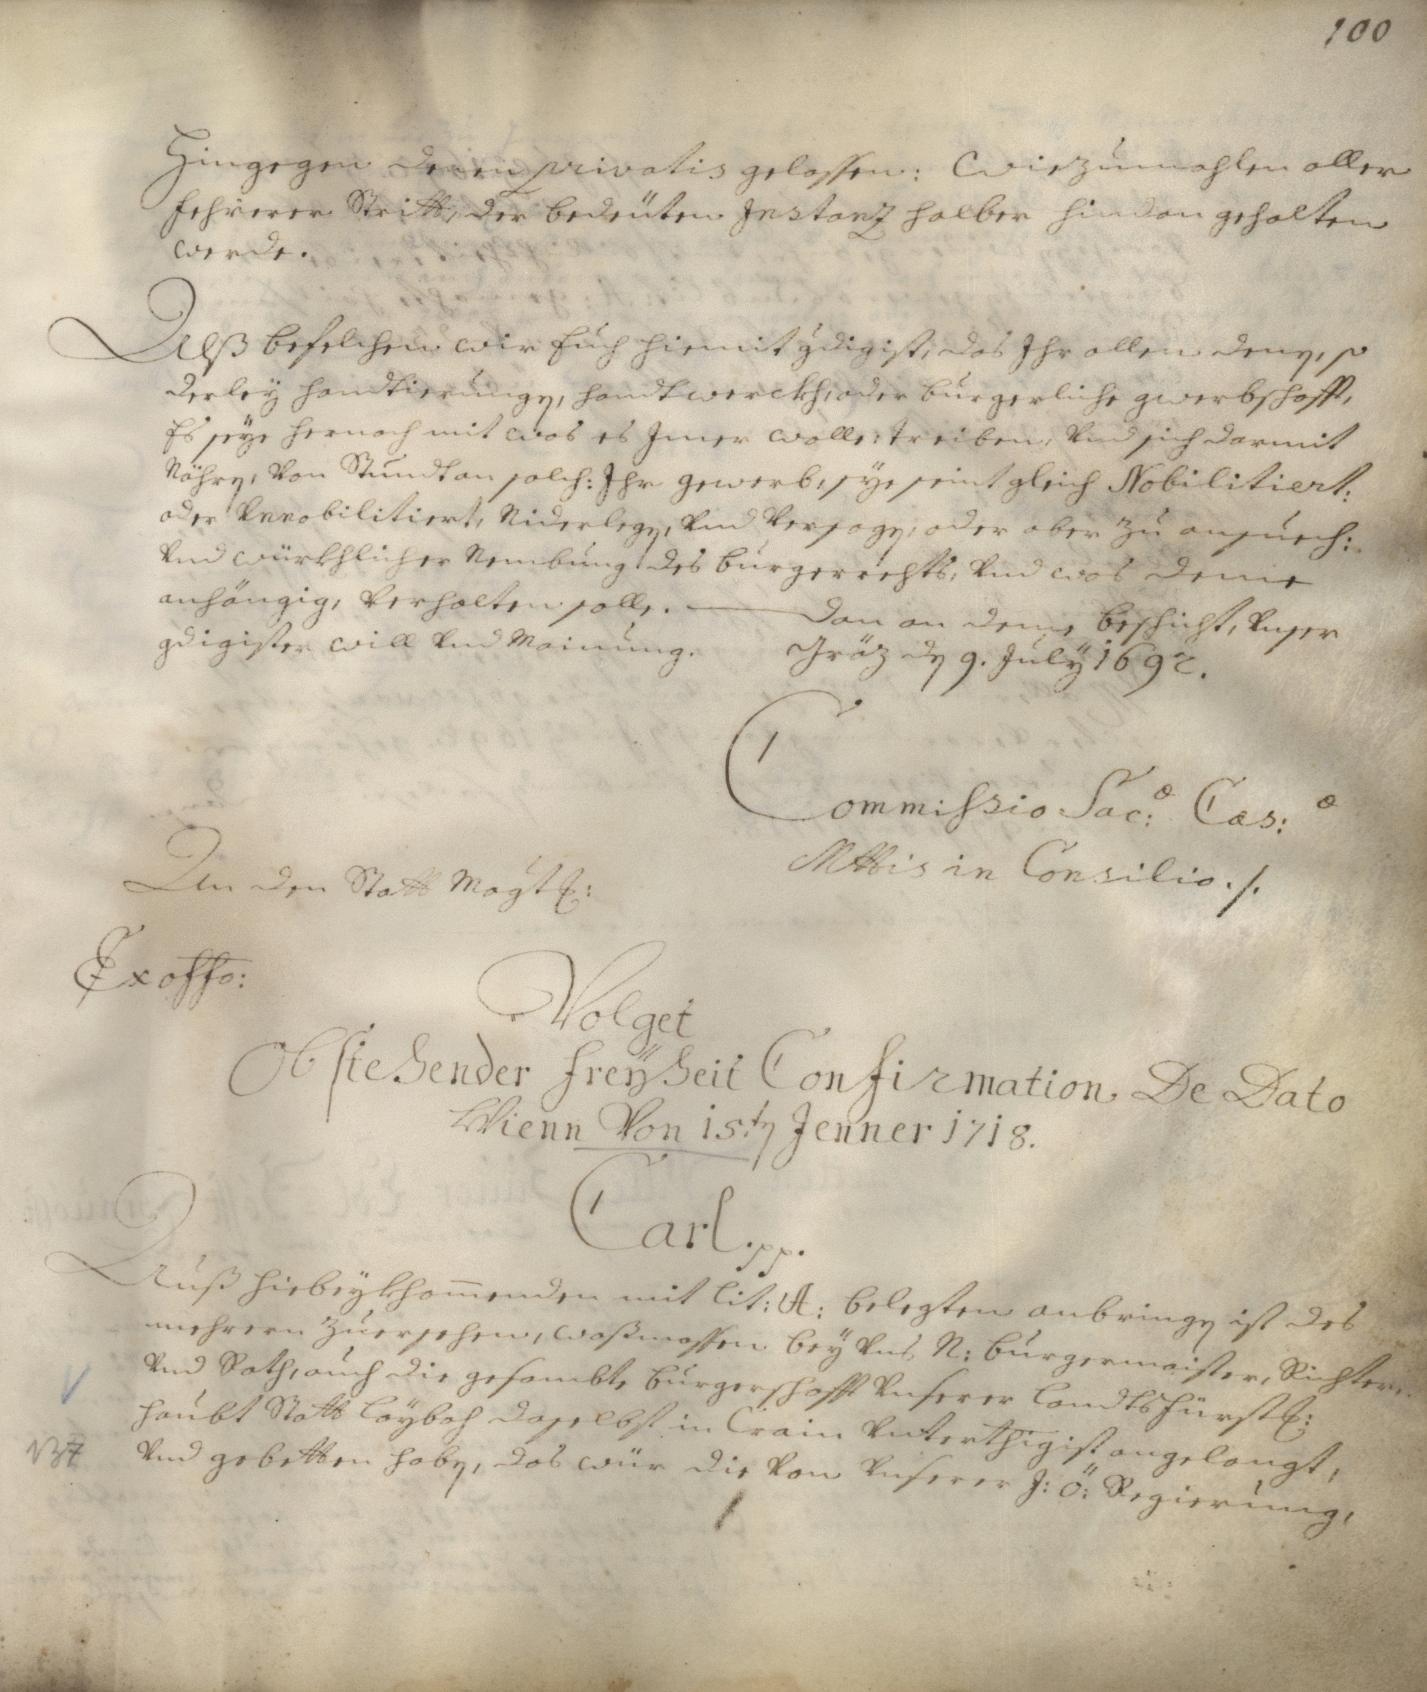 100
Hingegen denen privatis gelassen: wie zumahlen aller
fehrerer Stritt, der bedeüten Instanz halber hindan gehalten
werde.
Alß befelchen wir Euch hiemit gdigist, das Ihr allen deny, so
derley handtierungy, handtwerckh, oder burgerliche gwerbschafft,
Es seye hernach mit was es Imer wolle, treiben, Vnd sich darmit
Nöhry, Von Stundt an solch: Ihr gewerb, sye seint gleich Nobilitiert:
oder Vnnobilitiert, Niderlegy, Vnd Versagy, oder aber zu ansuech:
Vnd würkhlicher Nembung des burgerrechts, Vnd was deme
anhängig, Verhalten solle. — Dan an deme beschicht, Vnser
gdigister will Vnd Mainung. Gräz dy 9. July 1692.
Commissio Sac:ae Caes:ae
Mttis in Consilio ./.
An den Statt Mägt͠:
Ex offo:
Volget
Obstehender freÿheit Confirmation De Dato
Wienn Von 15.ty Jenner 1718.
Carl .pp.
Auß hiebeykhom̅enden mit lit: A: belegten anbringy ist des
mehrern zuersehen, waßmassen bey Vns N: burgermaister, Richter,
Vnd Rath, auch die gesambte burgerschafft Vnserer landtsfürstl:
haubt Statt laybach daselbst in Crain Vnterthigist angelangt,
137
Vnd gebetten haby, das wür die Von Vnserer J: Ö: Regierung,